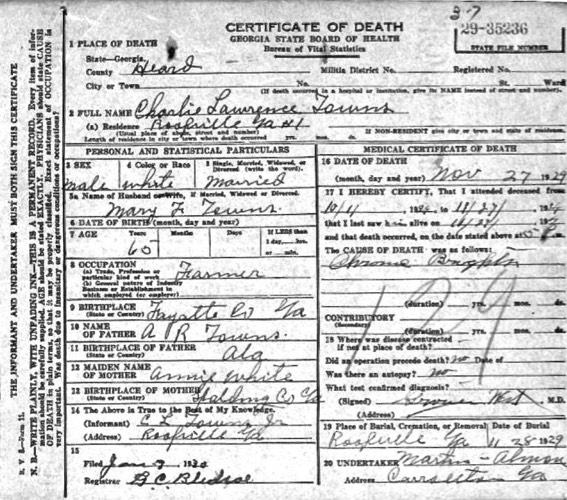 3-7
29-35236
STATE FILE NUMBER
CERTIFICATE OF DEATH
GEORGIA STATE BOARD OF HEALTH
Bureau of Vital Statistics
1 PLACE OF DEATH
State—Georgia,
County Heard
Militia District No.
Registered No.
City or Town
No.
St.
Ward
(If death occurred in a hospital or institution, give its NAME instead of street and number).
2 FULL NAME Charlie Lawrence Towns
(a) Residence Roopville Ga #1
(Usual place of abode, street and number)
If NON-RESIDENT give city or town and state of residence.
Length of residence in city or town where death occurred yrs. mos.
PERSONAL AND STATISTICAL PARTICULARS
3 SEX
4 Color or Race
5 Single, Married, Widowed, or Divorced (write the word).
male white Married
5a Name of Husband or Wife, if Married, Widowed or Divorced.
Mary F. Towns
6 DATE OF BIRTH (month, day and year)
7 AGE
Years
Months
Days
If LESS than
1 day, hrs.
or min.
65
8 OCCUPATION
(a) Trade, Profession or particular kind of work
(b) General nature of Industry Business or Establishment in which employed (or employer)
Farmer
9 BIRTHPLACE
(State or Country)
Fayette Co Ga
10 NAME OF FATHER A R Towns.
11 BIRTHPLACE OF FATHER
(State or Country)
Ala
12 MAIDEN NAME OF MOTHER Annie White
13 BIRTHPLACE OF MOTHER
(State or Country)
Co Ga
14 The Above is True to the Best of My Knowledge.
(Informant) C L Towns Jr
(Address) Roopville Ga
15
Filed Jan 9 1930
Registrar G C Bledsoe
MEDICAL CERTIFICATE OF DEATH
16 DATE OF DEATH
(month, day and year) Nov 27 1929
17 I HEREBY CERTIFY, That I attended deceased from
10/11 192 to 11/27 192
that I last saw him alive on 11/27 192
and that death occurred, on the date stated above at
The CAUSE OF DEATH was as follows:
Chronic
129
(duration) yrs. mos. da.
CONTRIBUTORY
(Secondary)
(duration) yrs. mos. da.
18 Where was disease contracted if not at place of death?
Did an operation precede death? No Date of
Was there an autopsy? No
What test confirmed diagnosis?
(Signed) M.D.
(Address)
19 Place of Burial, Cremation, or Removal
Date of Burial
Roopville Ga 11 28 1929
20 UNDERTAKER Martin - Almon
Address Carrollton Ga
THE INFORMANT AND UNDERTAKER MUST BOTH SIGN THIS CERTIFICATE
N. B.—WRITE PLAINLY, WITH UNFADING INK—THIS IS A PERMANENT RECORD. Every item of information should be carefully supplied. AGE should be stated EXACTLY. PHYSICIANS should state CAUSE OF DEATH in plain terms, so that it may be properly classified. Exact statement of OCCUPATION is very important. Was death due to insanitary or dangerous conditions or occupations?